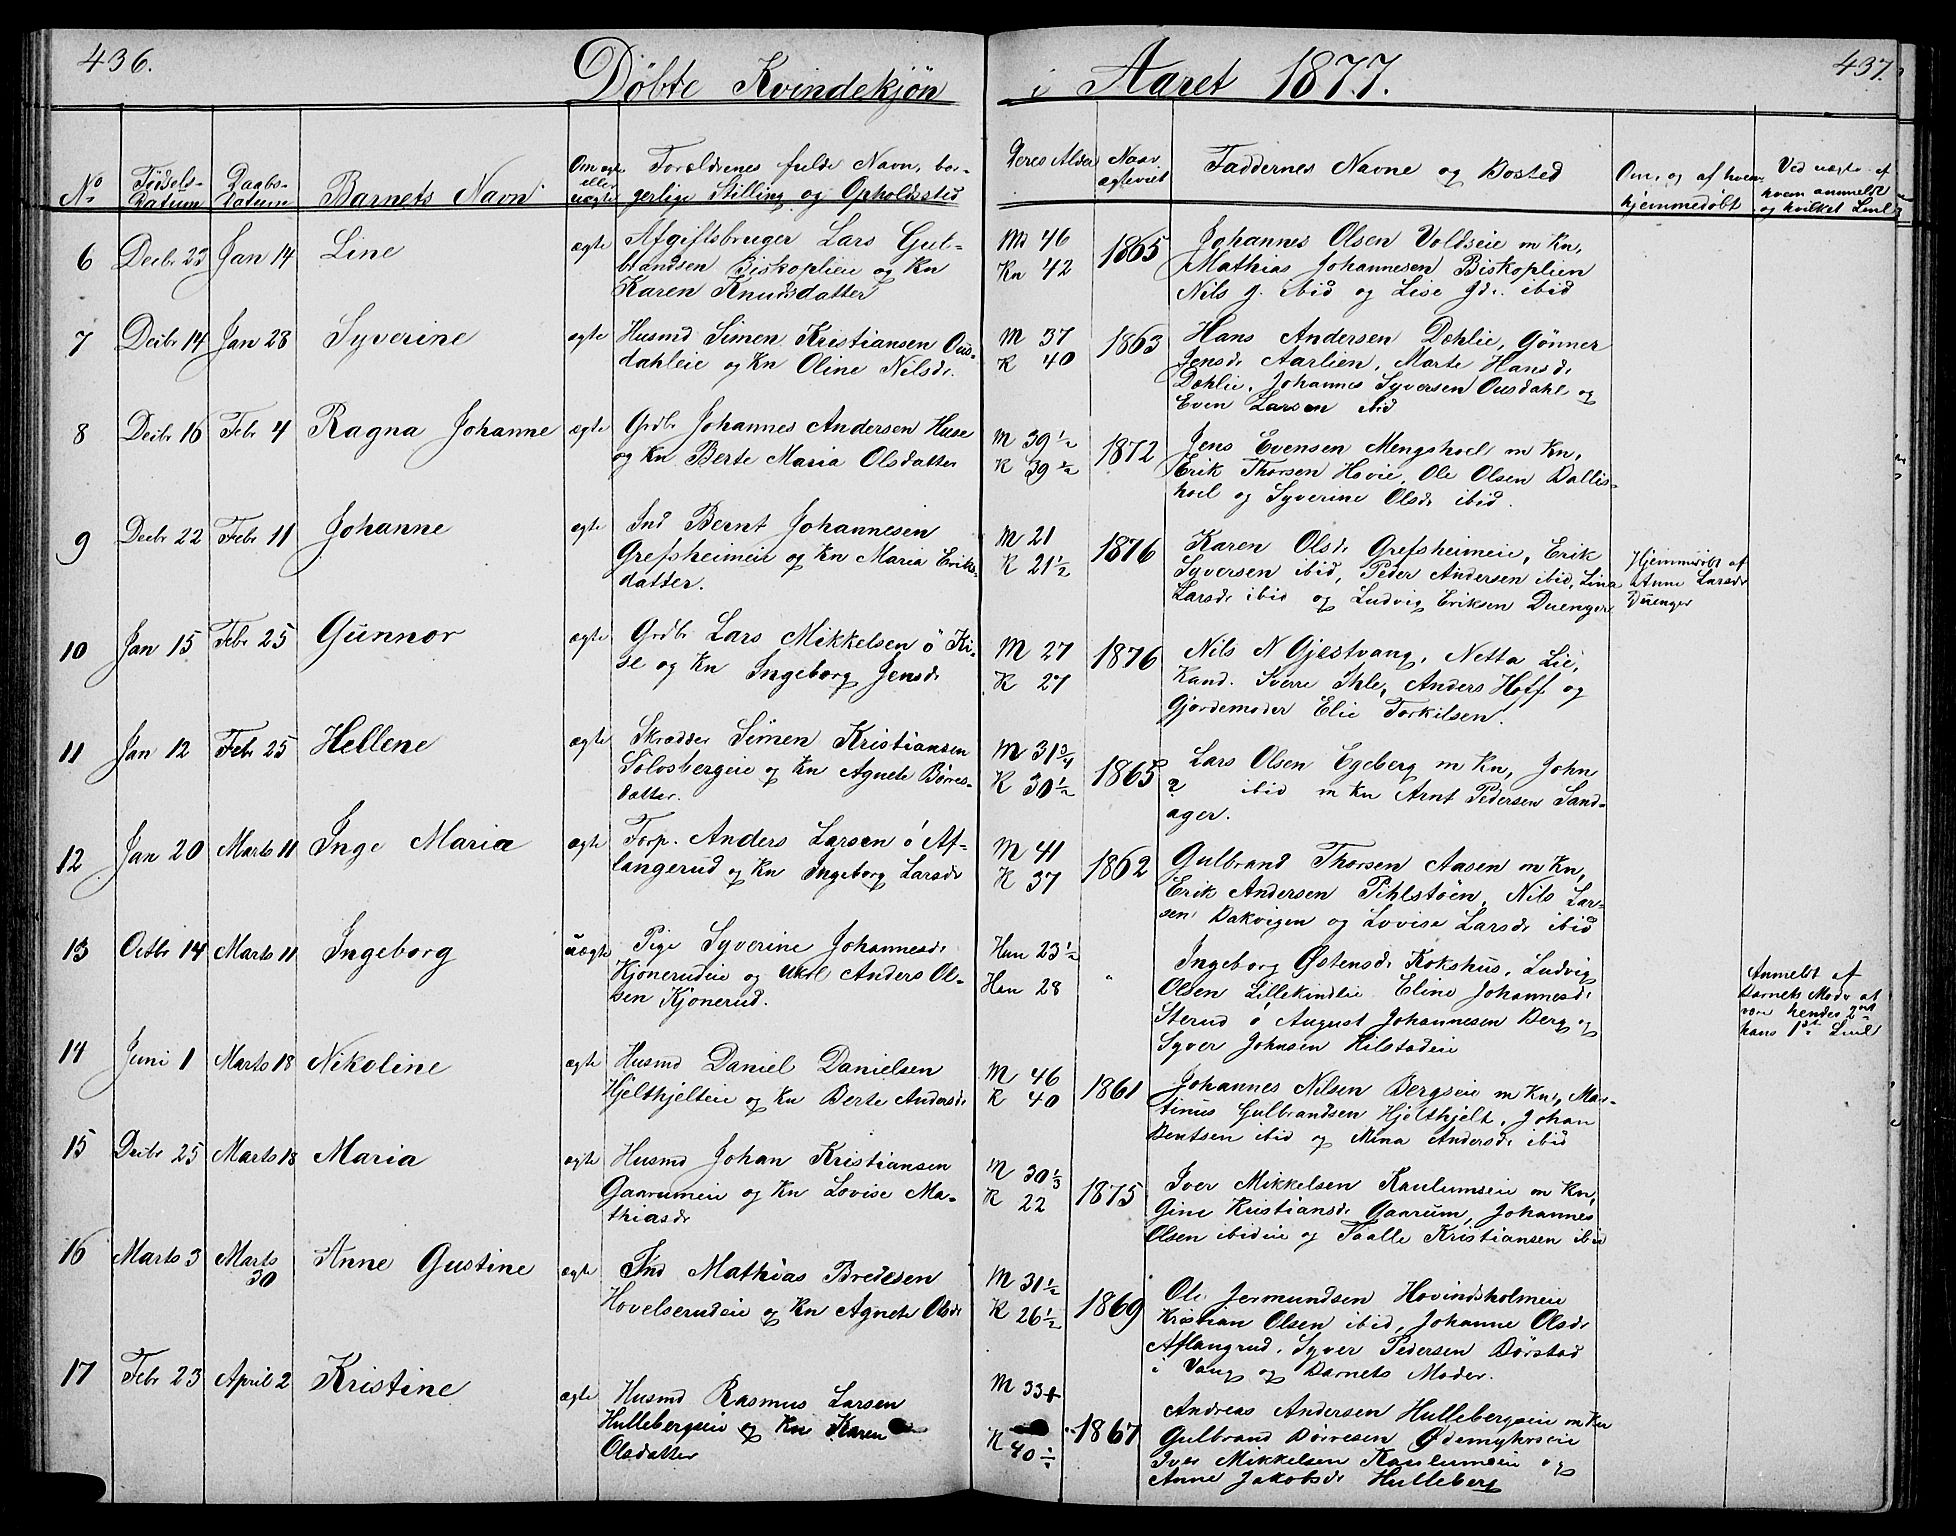 436.
Döbte Kvindekjön
i Aaret 1877.
437.
No
Födsels-
Datum
Daabs-
Datum
Barnets Navn
Om ægte
eller
uægte
Forældrenes fulde Navn, bor-
gerlige Stilling og Opholdssted
Deres Alder
Naar
ægteviet
Faddernes Navne og Bosted
Om, og af hvem
hjemmedöbt
Ved uægte af
hvem anmeldt
og hvilket Leiel
6 Decbr 23 Jan 14 Line ægte Afgiftsbruger Lars Gul-
brandsen Biskoplieie og Kn
Karen Knudsdatter
Md 46
Kn 42
1865
Johannes Olsen Voldseie m Kn,
Mathias Johannesen Biskoplien
Nils J. ibid og Lise Jdr. ibid
7 Decbr 14 Jan 28 Syverine ægte Husmd Simen Kristiansen Ous-
dahleie og Kn Oline Nilsdr.
M 37
K 40
1863
Hans Andersen Dehlie, Gönner
Jensdr Aarlien, Marte Hansdr
Dehlie, Johannes Syversen Ousdahl og
Even Larsen ibid
8 Decbr 16 Febr 4 Ragna Johanne ægte Grdbr Johannes Andersen Huse
og Kn Berte Maria Olsdatter
M 39 1/2
K 39 1/2
1872
Jens Evensen Mengshoel m Kn,
Erik Thorsen Hovie, Ole Olsen Dallis-
hoel og Syverine Olsdr ibid.
9 Decbr 22 Febr 11 Johanne ægte Ind Bernt Johannesen
Grefsheimeie og Kn Maria Eriks-
datter.
M 21
K 21 1/2
1876
Karen Olsdr Grefsheimeie, Erik
Syversen ibid, Peder Andersen ibid, Lina
Larsdr ibid og Ludvig Eriksen Duenger
Hjemmedöbt af
Anne Larsdr
Duenger
10 Jan 15 Febr 25 Gunnor ægte Grdbr Lars Mikkelsen ö Ki-
se og Kn Ingeborg Jensdr
M 27
K 27
1876
Nils N Gjestvang, Netta Lie,
Kand. Sverre Ihle, Anders Hoff og
Gjordemoder Elie Torkilsen.
11 Jan 12 Febr 25 Hellene ægte Skrædder Simen Kristiansen
Solvsbergeie og Kn Agnete Börres-
datter.
M 31 3/4
K 30 1/2
1865
Lars Olsen Egeberg m Kn, John
? ibid m Kn Arnt Pedersen Sand-
ager.
12 Jan 20 Marts 11 Inge Maria ægte Forp. Anders Larsen ö Af-
langerud og Kn Ingeborg Larsdr
M 41
K 37
1862
Gulbrand Thorsen Aasen m Kn,
Erik Andersen Pihlstöen, Nils Lar-
sen Bakvigen og Lovise Larsdr ibid
13 Octbr 14 Marts 11 Ingeborg uægte Pige Syverine Johannesdr
Kjonerudeie og Ukrl Anders Ol-
sen Kjonerud.
Hun 23 1/2
Han 28
"
Ingeborg Østensdr Kokshus, Ludvig
Olsen Lillekindlie Eline Johannesdr
Sterud ö August Johannesen Berg og
Syver Johnsen Hilstadeie
Anmeldt af
Barnets Moder at
være hendes 2det
hans 1ste Leiel
14 Juni 1 Marts 18 Nikoline ægte Husmd Daniel Danielsen
Hjelthjelteie og Kn Berte Andersdr
M 46
K 40
1861
Johannes Nilsen Bergseie m Kn, Mar-
tinus Gulbrandsen Hjelthjelt, Johan
Bentsen ibid og Mina Andersdr ibid
15 Decbr 25 Marts 18 Maria ægte Husmd Johan Kristiansen
Gaarumeie og Kn Lovise Ma-
thiasdr
M 30 1/3
K 22
1875
Iver Mikkelsen Kaulumseie m Kn,
Gine Kristiansdr Gaarum, Johannes
Olsen ibideie og Taalle Kristiansen ibid
16 Marts 3 Marts
30 Anne Gustine ægte Ind Mathias Bredesen
Hovelserudeie og Kn Agnete Olsdr
M 31 1/2
K 26 1/2
1869
Ole Jermundsen Hovindsholmeie
Kristian Olsen ibid, Johanne Olsdr
Aflangrud, Syver Pedersen Börstad
i Vang og Barnets Moder.
17 Febr 23 April 2 Kristine ægte Husmd Rasmus Larsen
Hullebergseie og Kn Karen
Olsdatter
M 33
K 40
1867
Andreas Andersen Hullebergseie m Kn
Gulbrand Börresen Ødemyhrseie
Iver Mikkelsen Kaulumseie og
Anne Jakobsdr Hulleberg